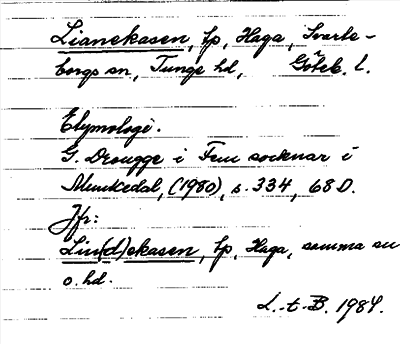 Lianekasen, tp, Haga, Svarte-
borgs sn, Tunge hd, Göteb. l.
Etymologi.
G. Drougge i Fem socknar i
Munkedal, (1980), s. 334, 68 D.
Jfr:
Lin(d)ekasen, tp, Haga, samma sn
o. hd.
L.-t. B. 1984.